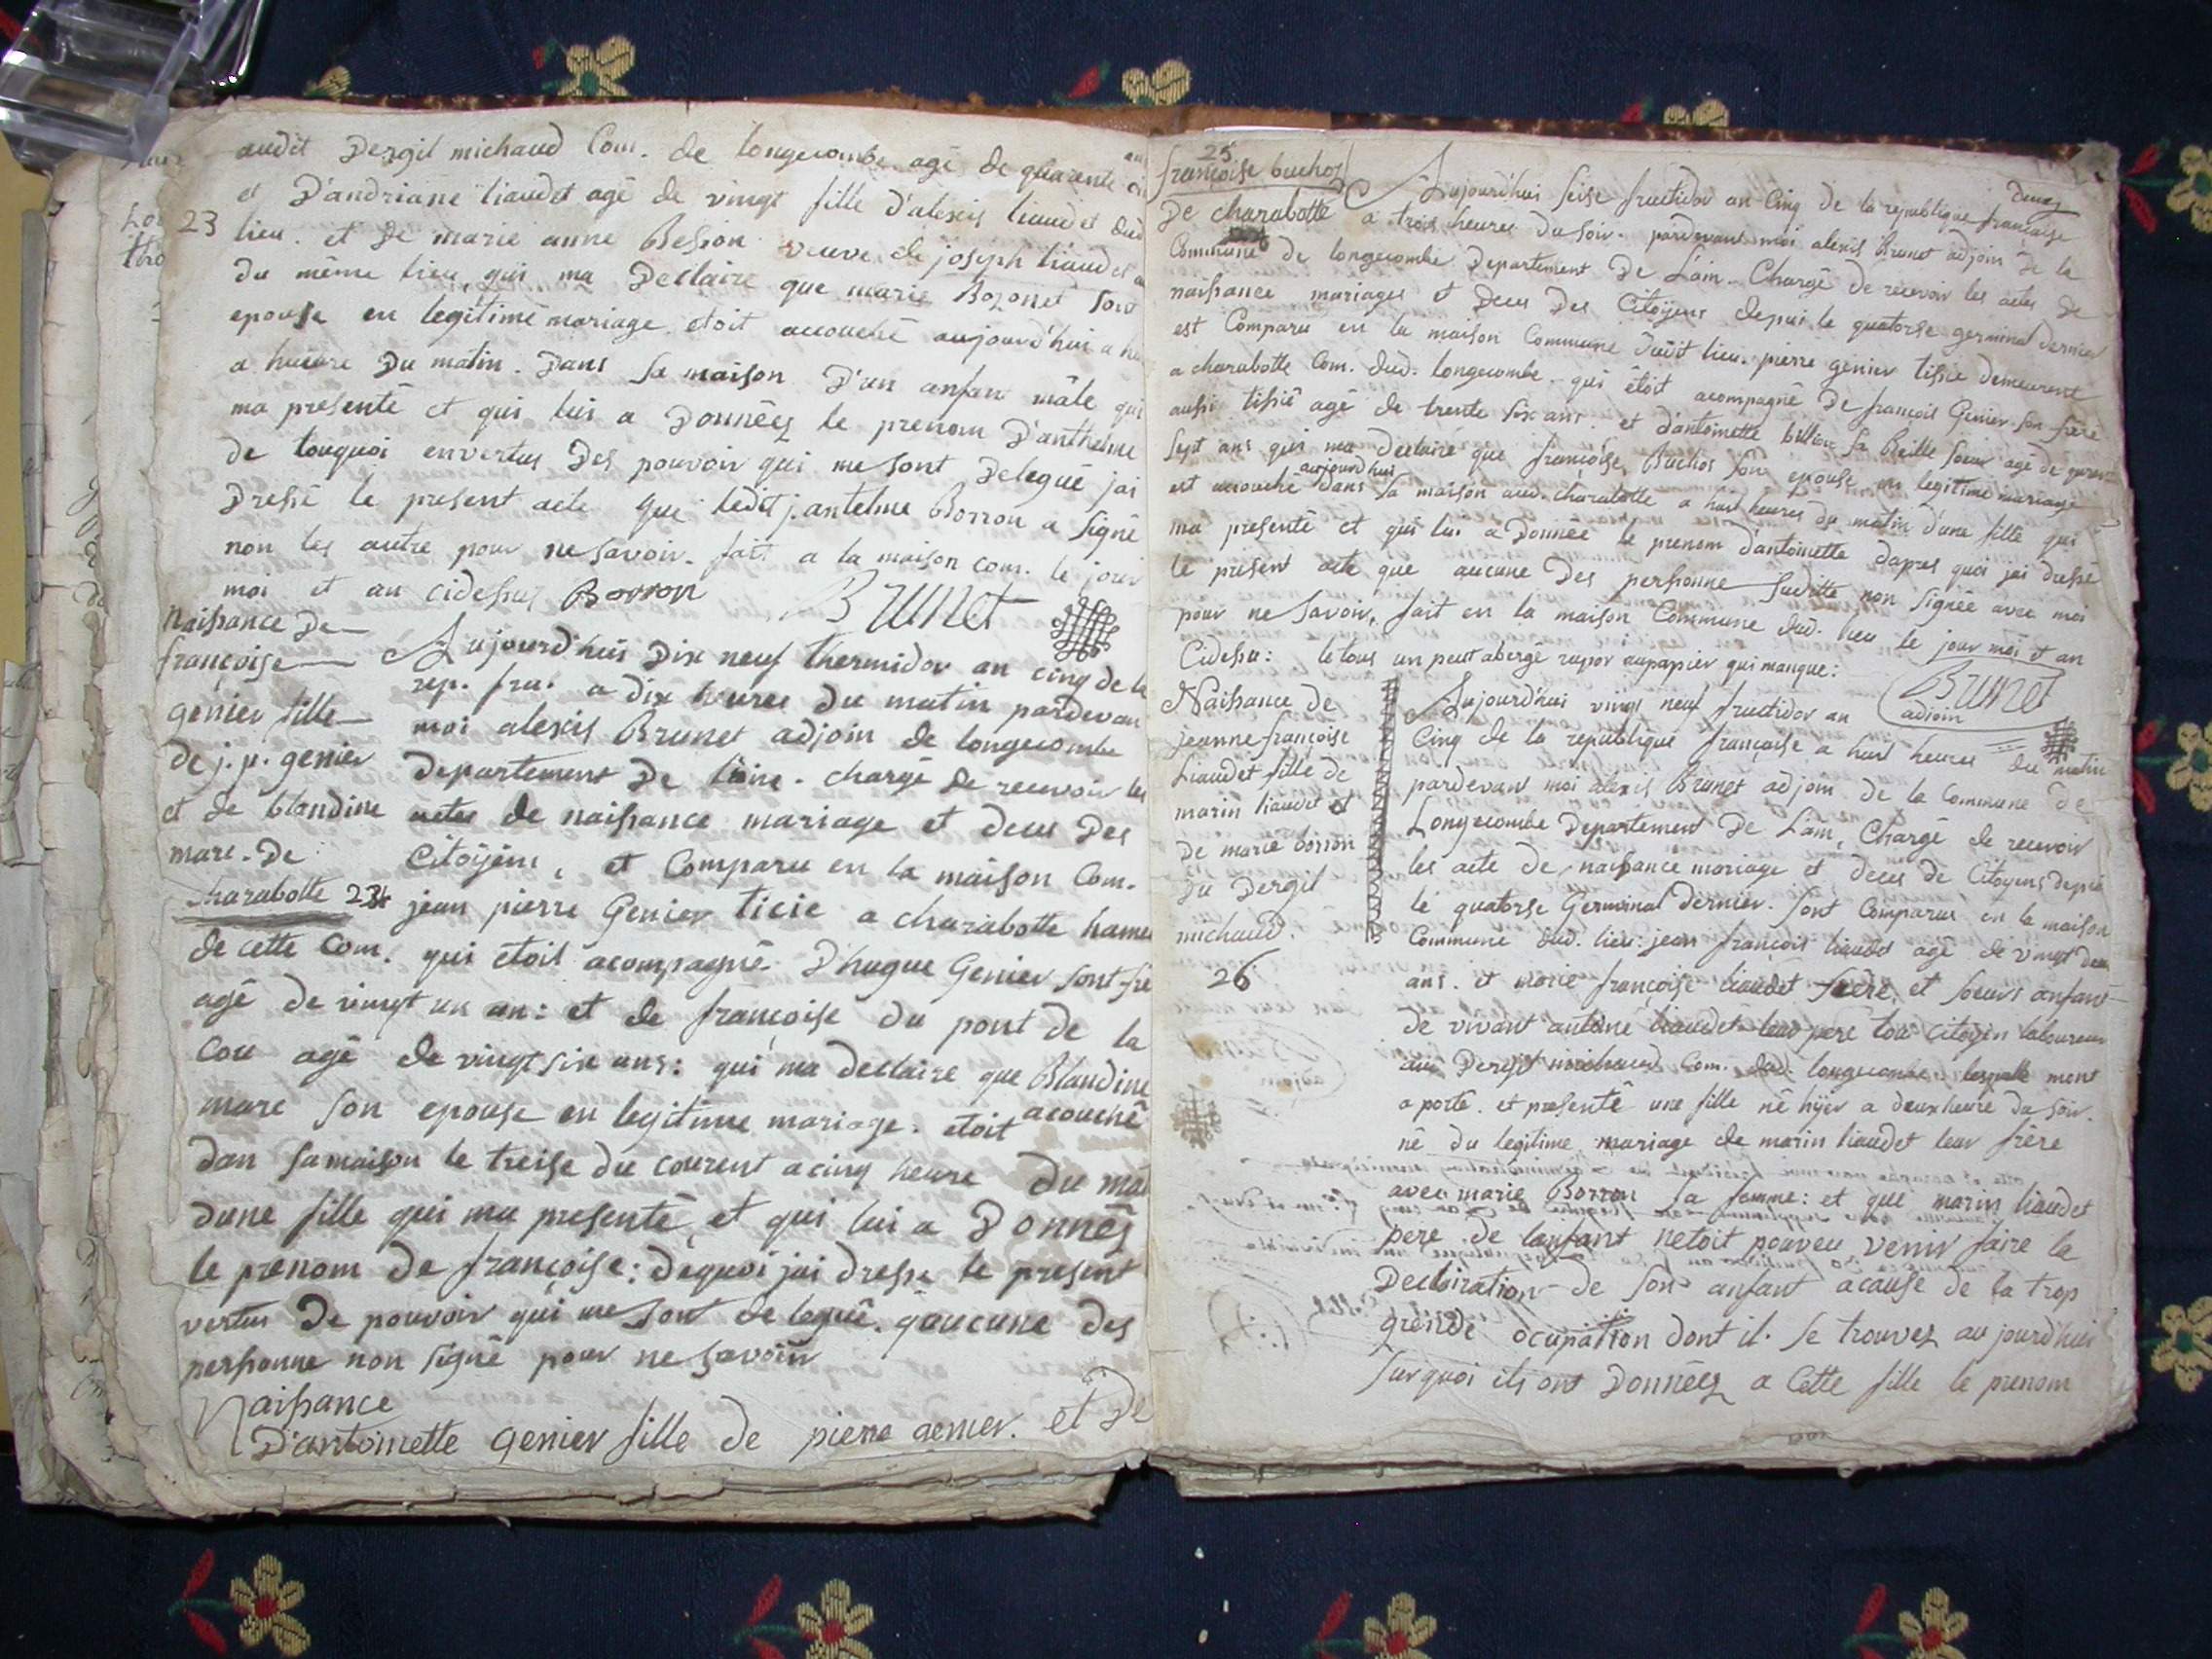 audit Dergil michaud Com. de longecombe agé de quarente
et D'andriane liaudet agé de vingt fille d'alexis liaudet dud
23 lieu. et de marie anne Besson veuve de joseph liaudet
du même lieu, qui ma Declaire que marie Bozonet sont
epouse en legitime mariage etoit accouché aujourd'hui a
a hueure Du matin. Dans sa maison D'un anfan mâle qui
ma presenté et qui lui a Donnéez le prenom D'anthelme
de touquoi envertus Des pouvoir qui me sont Delegué jai
Dressé le present acte que ledit j. antelme Borron a signé
non les autre pour ne savoir. fait a la maison com. le jour
moi et an cidessus Borron Brunet
Naissance De
françoise
genier fille
de j. p. genier
et de blandine
marc. De
charabotte 24
Aujourd'hui Dix neuf thermidor an cinq de la
rep. fra. a dix heures du matin pardevan
moi alexis Brunet adjoin de longecombe
departement De l'ain. chargé de recevoir les
actes de naissance mariage et deces Des
Citoÿens, et Comparu en la maison Com.
jean pierre Genier ticie a charabotte hame
de cette Com. qui etoit acompagné D'hugue Genier sont fré
agé de vingt un an: et de françoise du pont de la
Cou agé de vingt six ans: qui ma declaire que Blandine
marc son epouse en legitime mariage. etoit acouché
dan samaison le treise du courent a cinq heure Du mat
dune fille qui ma presenté et qui lui a Donnéz
le prenom de françoise: dequoi jai dresse le present
vertus De pouvoir qui me sont de legué. qaucune des
perssonne non signé pour ne savoir
Naissance
D'antoinette genier fille de pierre genier. et De
25
françoise buchoz
De charabotte
Aujourd'hui seise fructidor an Cinq de la republique française
a trois heures du soir. pardevant moi alexis Brunet adjoin de la
Commune de longecombe Departement De L'ain. Chargé de recevoir les actes de
naissance mariages et Deces Des Citoÿens depuis le quatorse germinal dernier
est Comparu en la maison Commune dudit lieu. pierre genier tissie demeurent
a charabotte Com. dud. longecombe. qui étoit acompagné De françois Genier son frere
aussi tissié agé de trente six ans. et d'antoinette billion sa Beille soeur agé de
sept ans qui ma declaire que françoise Buchos son epouse en legitime mariage
est accouche aujourd'hui dans sa maison aud. charabotte a huit heures du matin d'une fille qui
ma presenté et qui lui a Donnée le prenom d'antoinette dapres quoi jai dressé
le present acte que aucune Des perssonne suditte non signée avec moi
pour ne savoir, fait en la maison Commune dud. lieu le jour moi et an
Cidessu: le tous un peut abergé rapor aupapier qui manque:
Brunet
adjoin
Naissance de
jeanne françoise
Liaudet fille de
marin liaudet et
de marie borron
du Dergil
michaud.
26
Aujourd'hui vingt neuf fructidor an
Cinq de la republique française a huit heures du matin
pardevan moi alexis Brunet adjoin de la Commune de
Longecombe Departement De L'ain, Chargé de recevoir
les acte de naissance mariage et deces de Citoyens depuis
le quatorse Germinal dernier. sont Comparus en la maison
Commune dud. lieu: jean françois liaudet agé de vingt deux
ans. et marie françoise liaudet frere, et soeurs anfant
de vivant antoine liaudet leur pere tous Citoÿen laboureur
au Dergit michaud Com. dud. longecombe lesquelle mont
a porté. et presenté une fille né hÿer a deux heure du soir.
né du legitime mariage de marin liaudet leur frère
avec marie Borron sa femme: et que marin liaudet
pere de lanfant netoit pouveu venir faire la
Declairation de son anfant a cause de la trop
grende ocupation dont il se trouvez au jourd'hui
surquoi ils ont Donnéez a Cette fille le prenom